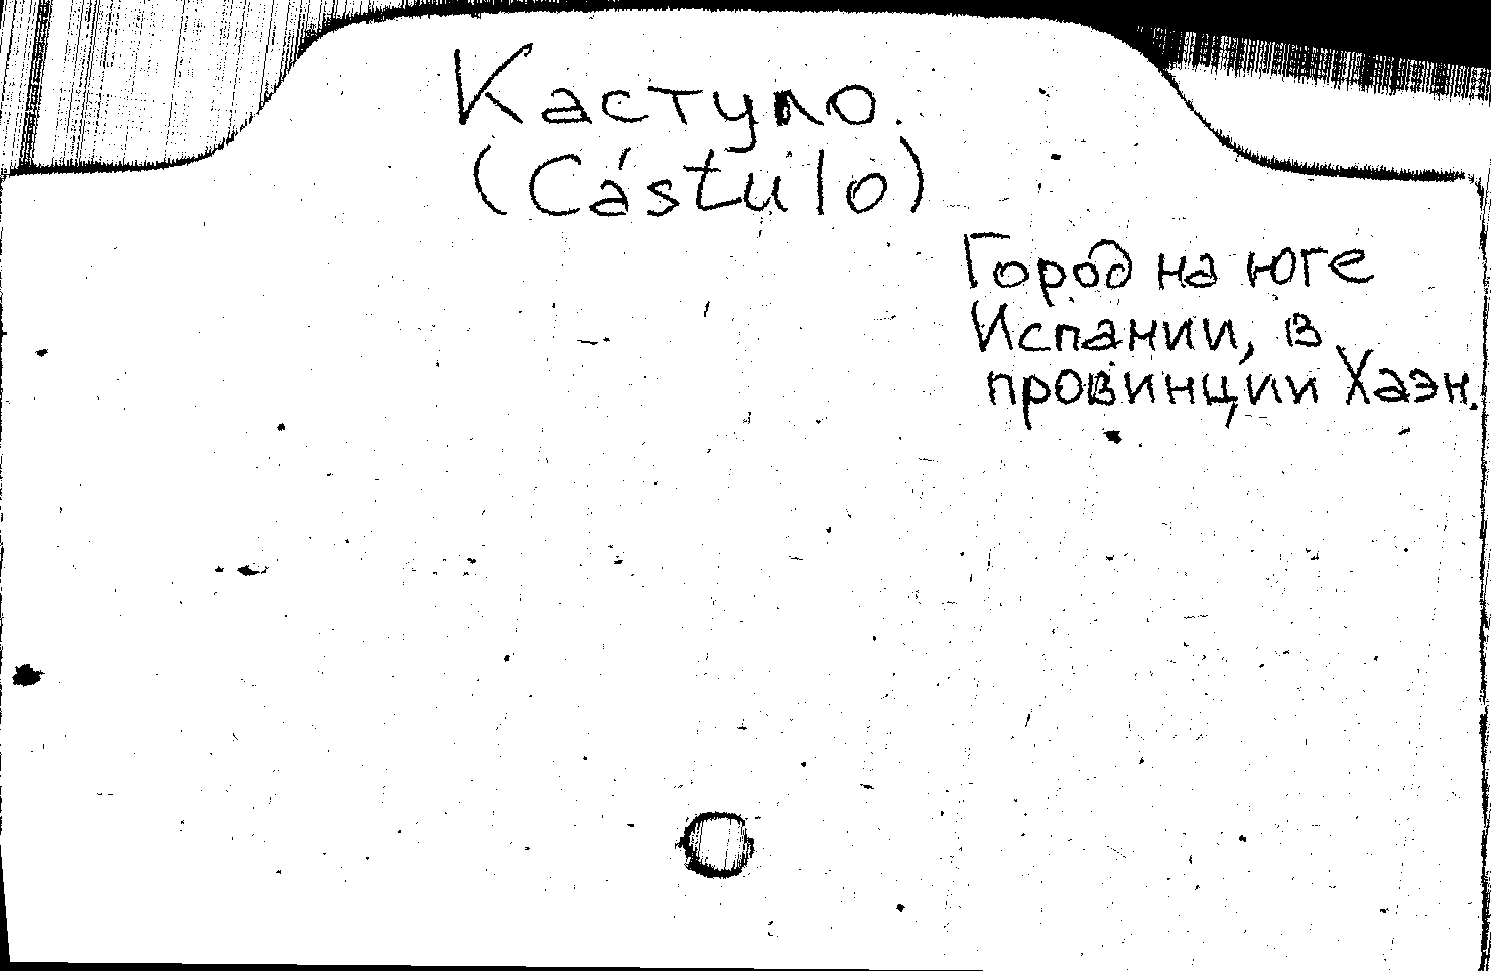 Кастуло.
(Cástulo)
Город на юге
Испании, в
провинции Хаэн.